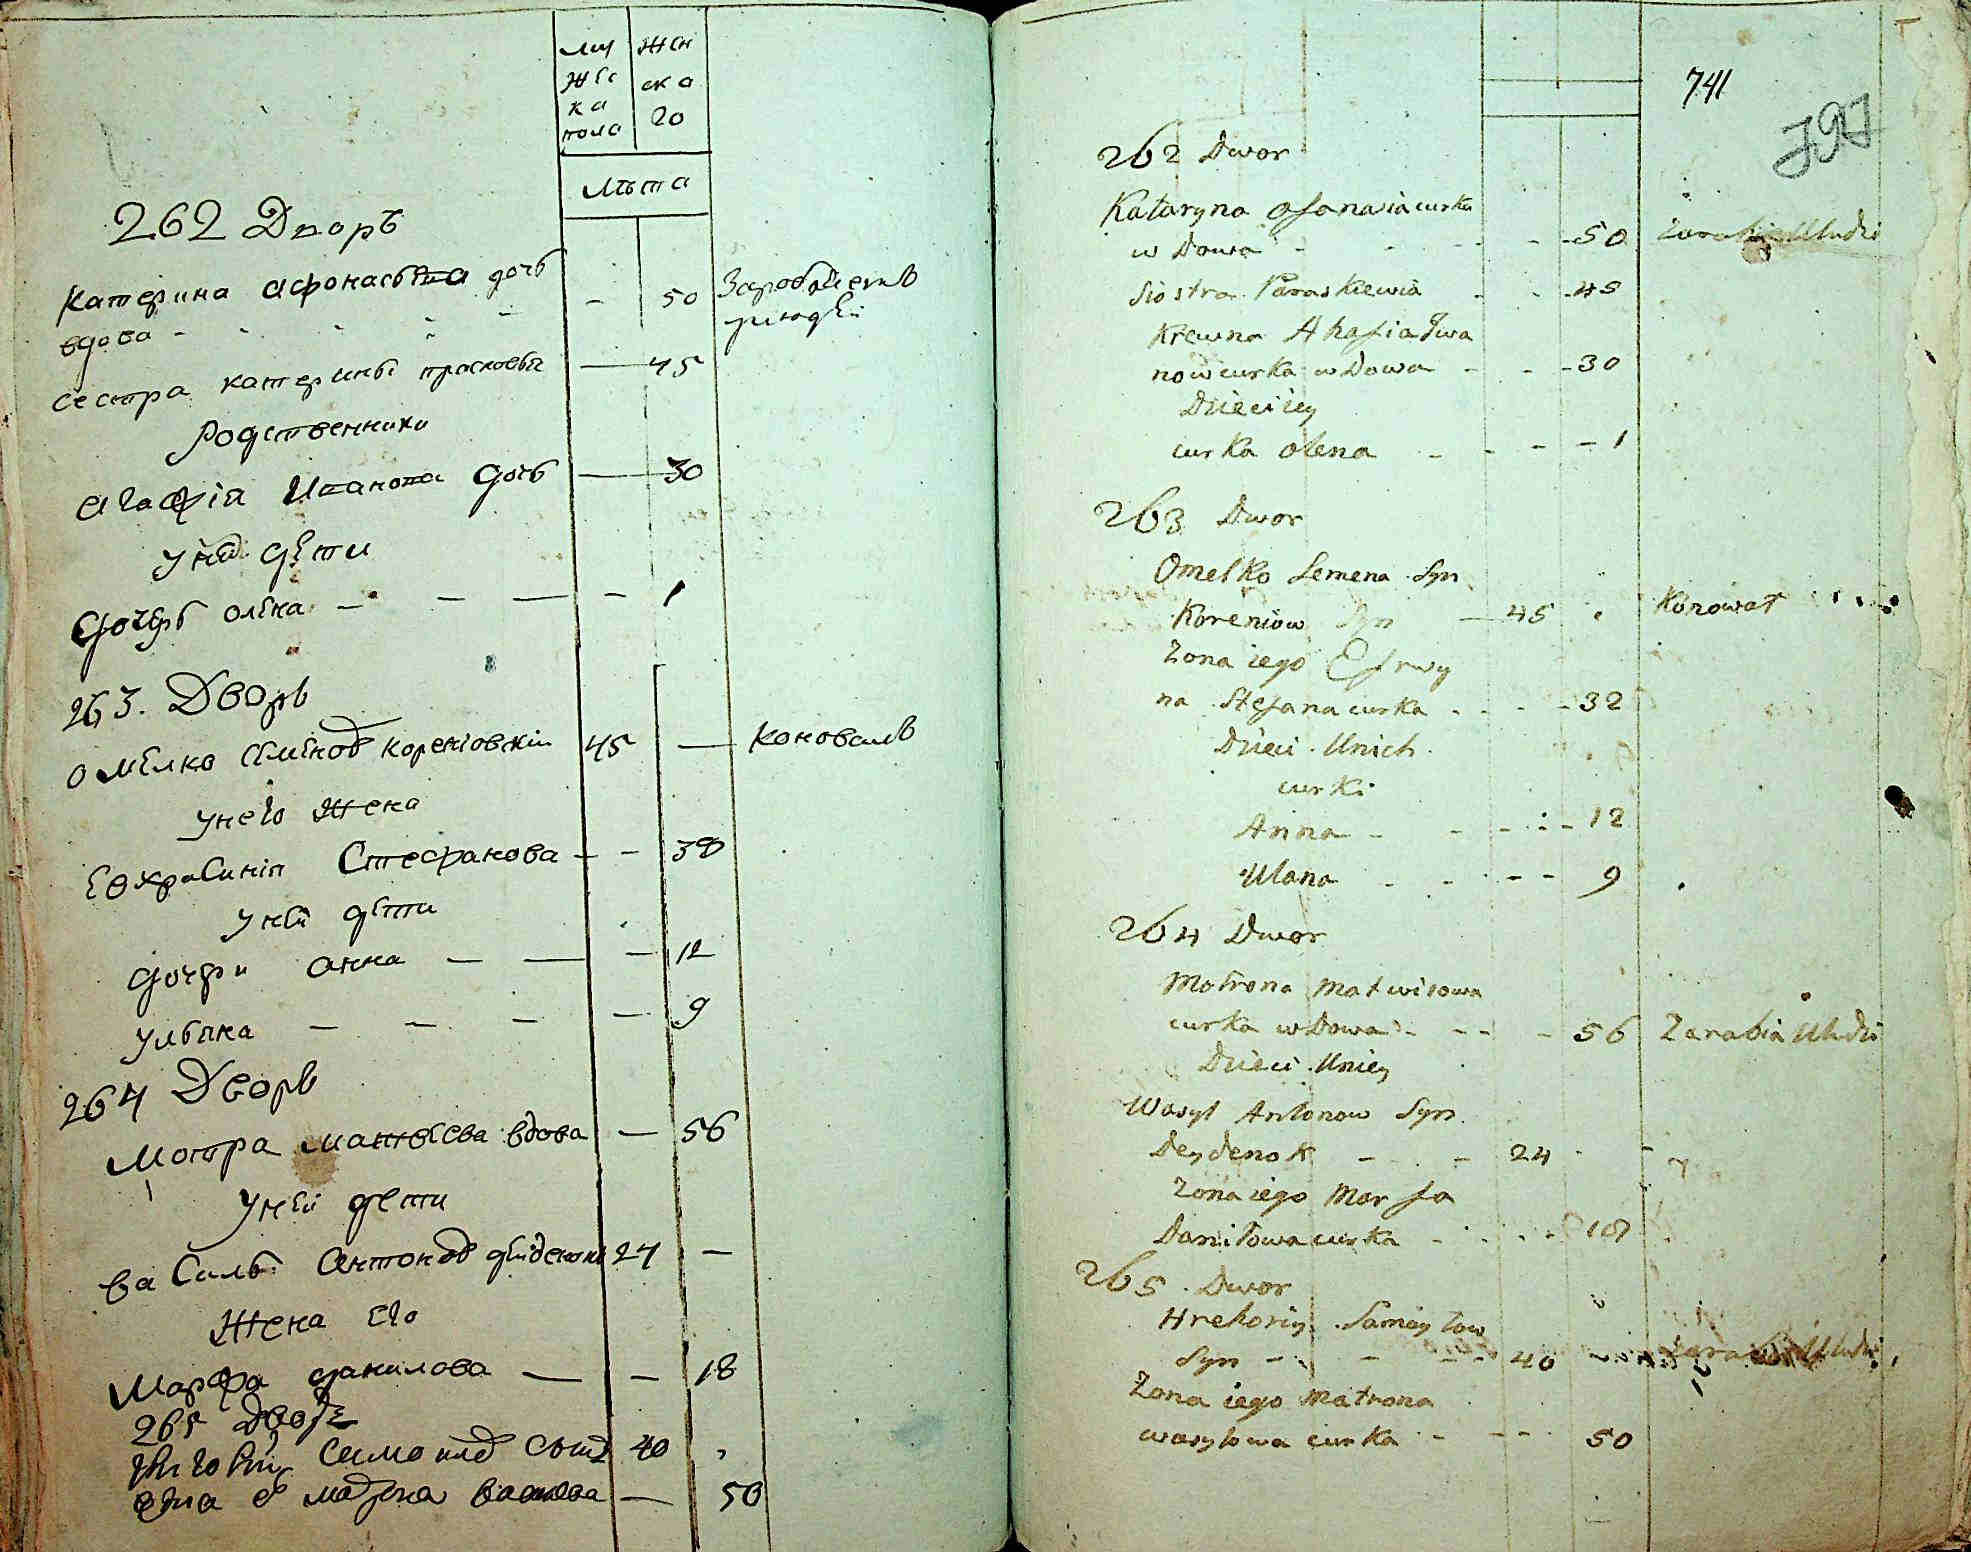 му жес ка пола
жен ска го
лѣта
262 Дворъ
Катерина Афонасьева дочь
вдова - - - - - 50 Заробѣткъ
у людей
сестра катерины прасковья — 45
Родственники
Агафiя Иванова дочь — 30
у ней дѣти
дочерь олена — — — - 1
263. Дворъ
омелко семенов коренiовскiи 45 — коновалъ
у него жена
Евхросинiя Стефанова - - 38
у ней дѣти
дочери анна — — — 12
ульяна — — — — 9
264 Дворъ
Мотра матвѣева вдова — 56
у ней дети
василь антонов дейденок 24 —
жена его
Марфа данилова — — 18
265 дворъ
григорий самойлов сынъ 40
жена его матрона васылева — 50
741
262 Dwor
Kataryna Afanasia curka
wdowa - - - - 50 zarabia U ludzi
Siostra Paraskiewia - - 45
Krewna Ahafia Iwa
now curka wdowa - - - 30
Dzieci iey
curka olena - - - - 1
263 Dwor
Omelko Semena Syn
Koreniow Syn — 45 Konowal
Zona iego Efrwy
na Stefana curka - - - - 32
Dzieci Unich
curki
Anna - - - - - 12
Ulana - - - - 9
264 Dwor
Motrona Matwiiowa
curka wdowa - - - - 56 Zarabia U ludzi
Dzieci Uniey
Wasyl Antonow Syn
Deydenok - - 24
Zona iego Marfa
Daniłowa curka - - - - 18
265 Dwor
Hrehoriy Samoylow
Syn - - - - 40 - zarabia U ludzi
Zona iego Matrona
wasylowa curka - - - 50